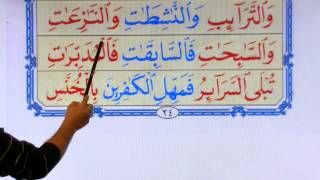 وَالتَّرَآئِبِ وَالنّٰشِطٰتِ وَالنّٰزِعٰتِ
وَالسّٰبِحٰتِ فَالسّٰبِقٰتِ فَالْمُدَبِّرٰتِ
تُبْلَى السَّرَآئِرُ فَمَهِّلِ الْكٰفِرِيْنَ بِالْخُنَّسِ
٢٤